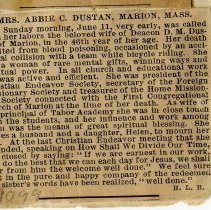 MRS. ABBIE C. DUSTAN, MARION, MASS.
Sunday morning, June 11, very early, was called
her labors the beloved wife of Deacon D. M. Dus-
of Marion, in the 46th year of her age. Her death
ulted from blood poisoning, occasioned by an acci-
al collision with a team while bicycle riding. She
a woman of rare mental gifts, winning ways and
itual power. In all church and educational work
was active and efficient. She was president of the
istian Endeavor Society, secretary of the Foreign
ssionary Society and treasurer of the Home Mission-
Society connected with the First Congregational
urch of Marion at the time of her death. As wife of
principal of Tabor Academy she was in close touch
the students, and her influence and work among
m was the means of great spiritual blessing. She
es a husband and a daughter, Helen, to mourn her
At the last Christian Endeavor meeting that she
ended, speaking on How Shall We Divide Our Time,
closed by saying: "If we are earnest in our work,
do the best that we can each day for Jesus, we shall
r from him the welcome well done." We feel sure
in the pure and happy company of the redeemed
sister's words have been realized, "well done."
H. L. B.